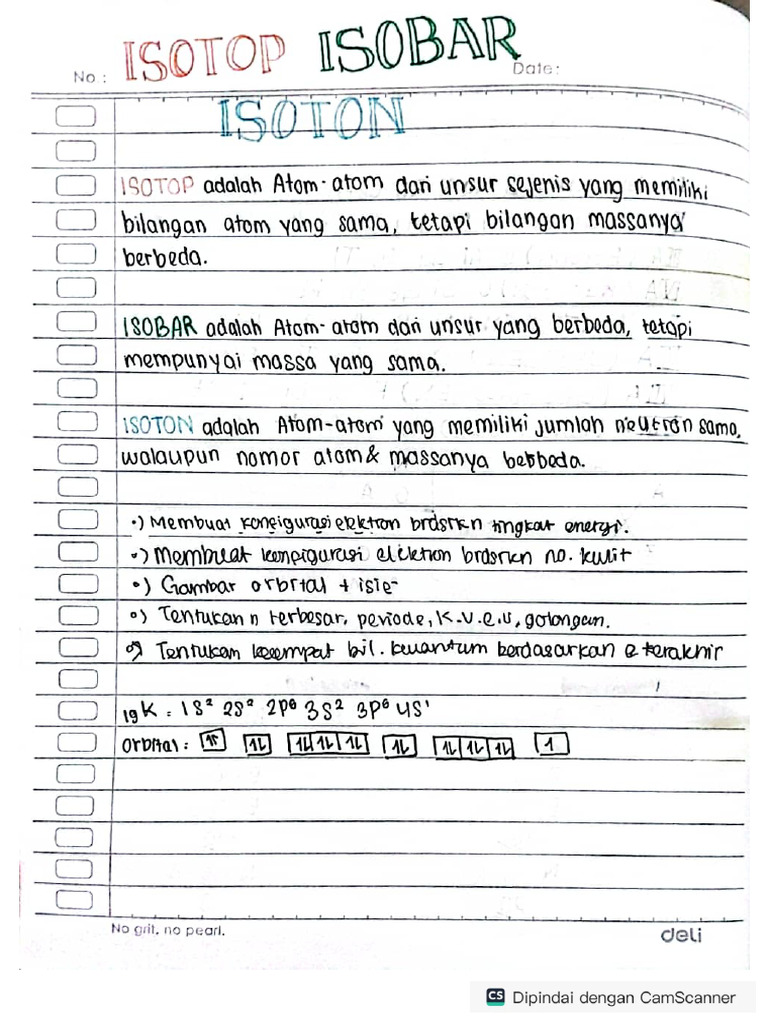 ISOTOP ISOBAR
No.: Date:
ISOTON
ISOTOP adalah Atom-atom dari unsur sejenis yang memiliki
bilangan atom yang sama, tetapi bilangan massanya
berbeda.
ISOBAR adalah Atom-atom dari unsur yang berbeda, tetapi
mempunyai massa yang sama.
ISOTON adalah Atom-atom yang memiliki jumlah neutron sama,
walaupun nomor atom & massanya berbeda.
•) Membuat konfigurasi elektron brdsrkn tingkat energi.
•) Membuat konfigurasi elektron brdsrkn no. kulit
•) Gambar orbital + isi e⁻
•) Tentukan n terbesar, periode, K.V.E.V, golongan.
•) Tentukan keempat bil. kuantum berdasarkan e terakhir
₁₉K : 1S² 2S² 2P⁶ 3S² 3P⁶ 4S¹
Orbital : 1l 1l 1l 1l 1l 1l 1l 1l 1l 1
No grit, no pearl. deli
CS Dipindai dengan CamScanner